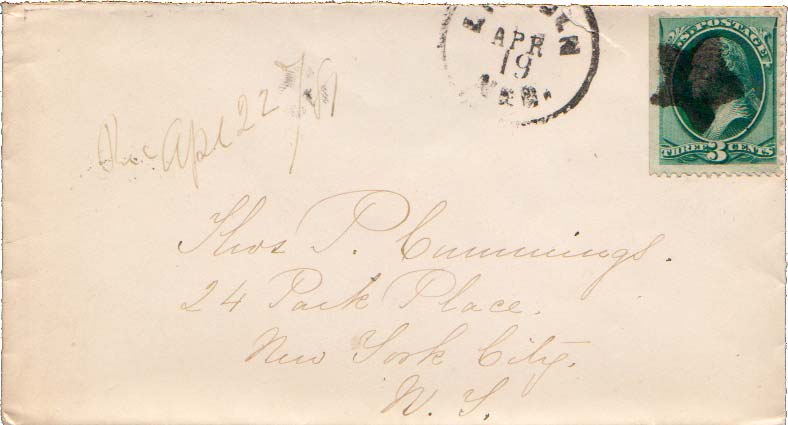 APR
19
NEB.
U.S. POSTAGE
THREE 3 CENTS
Rec Apl 22 /81
Thos P. Cummings.
24 Park Place.
New York City.
N. Y.